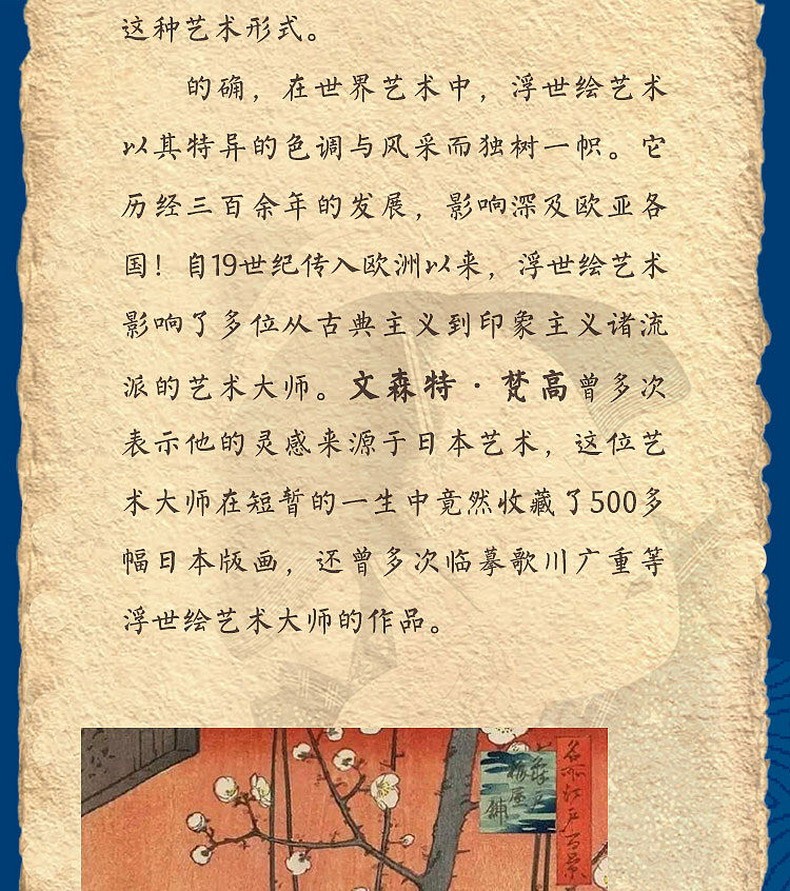 这种艺术形式。
的确，在世界艺术中，浮世绘艺术
以其特异的色调与风采而独树一帜。它
历经三百余年的发展，影响深及欧亚各
国！自19世纪传入欧洲以来，浮世绘艺术
影响了多位从古典主义到印象主义诸流
派的艺术大师。文森特·梵高曾多次
表示他的灵感来源于日本艺术，这位艺
术大师在短暂的一生中竟然收藏了500多
幅日本版画，还曾多次临摹歌川广重等
浮世绘艺术大师的作品。
名所江戸百景